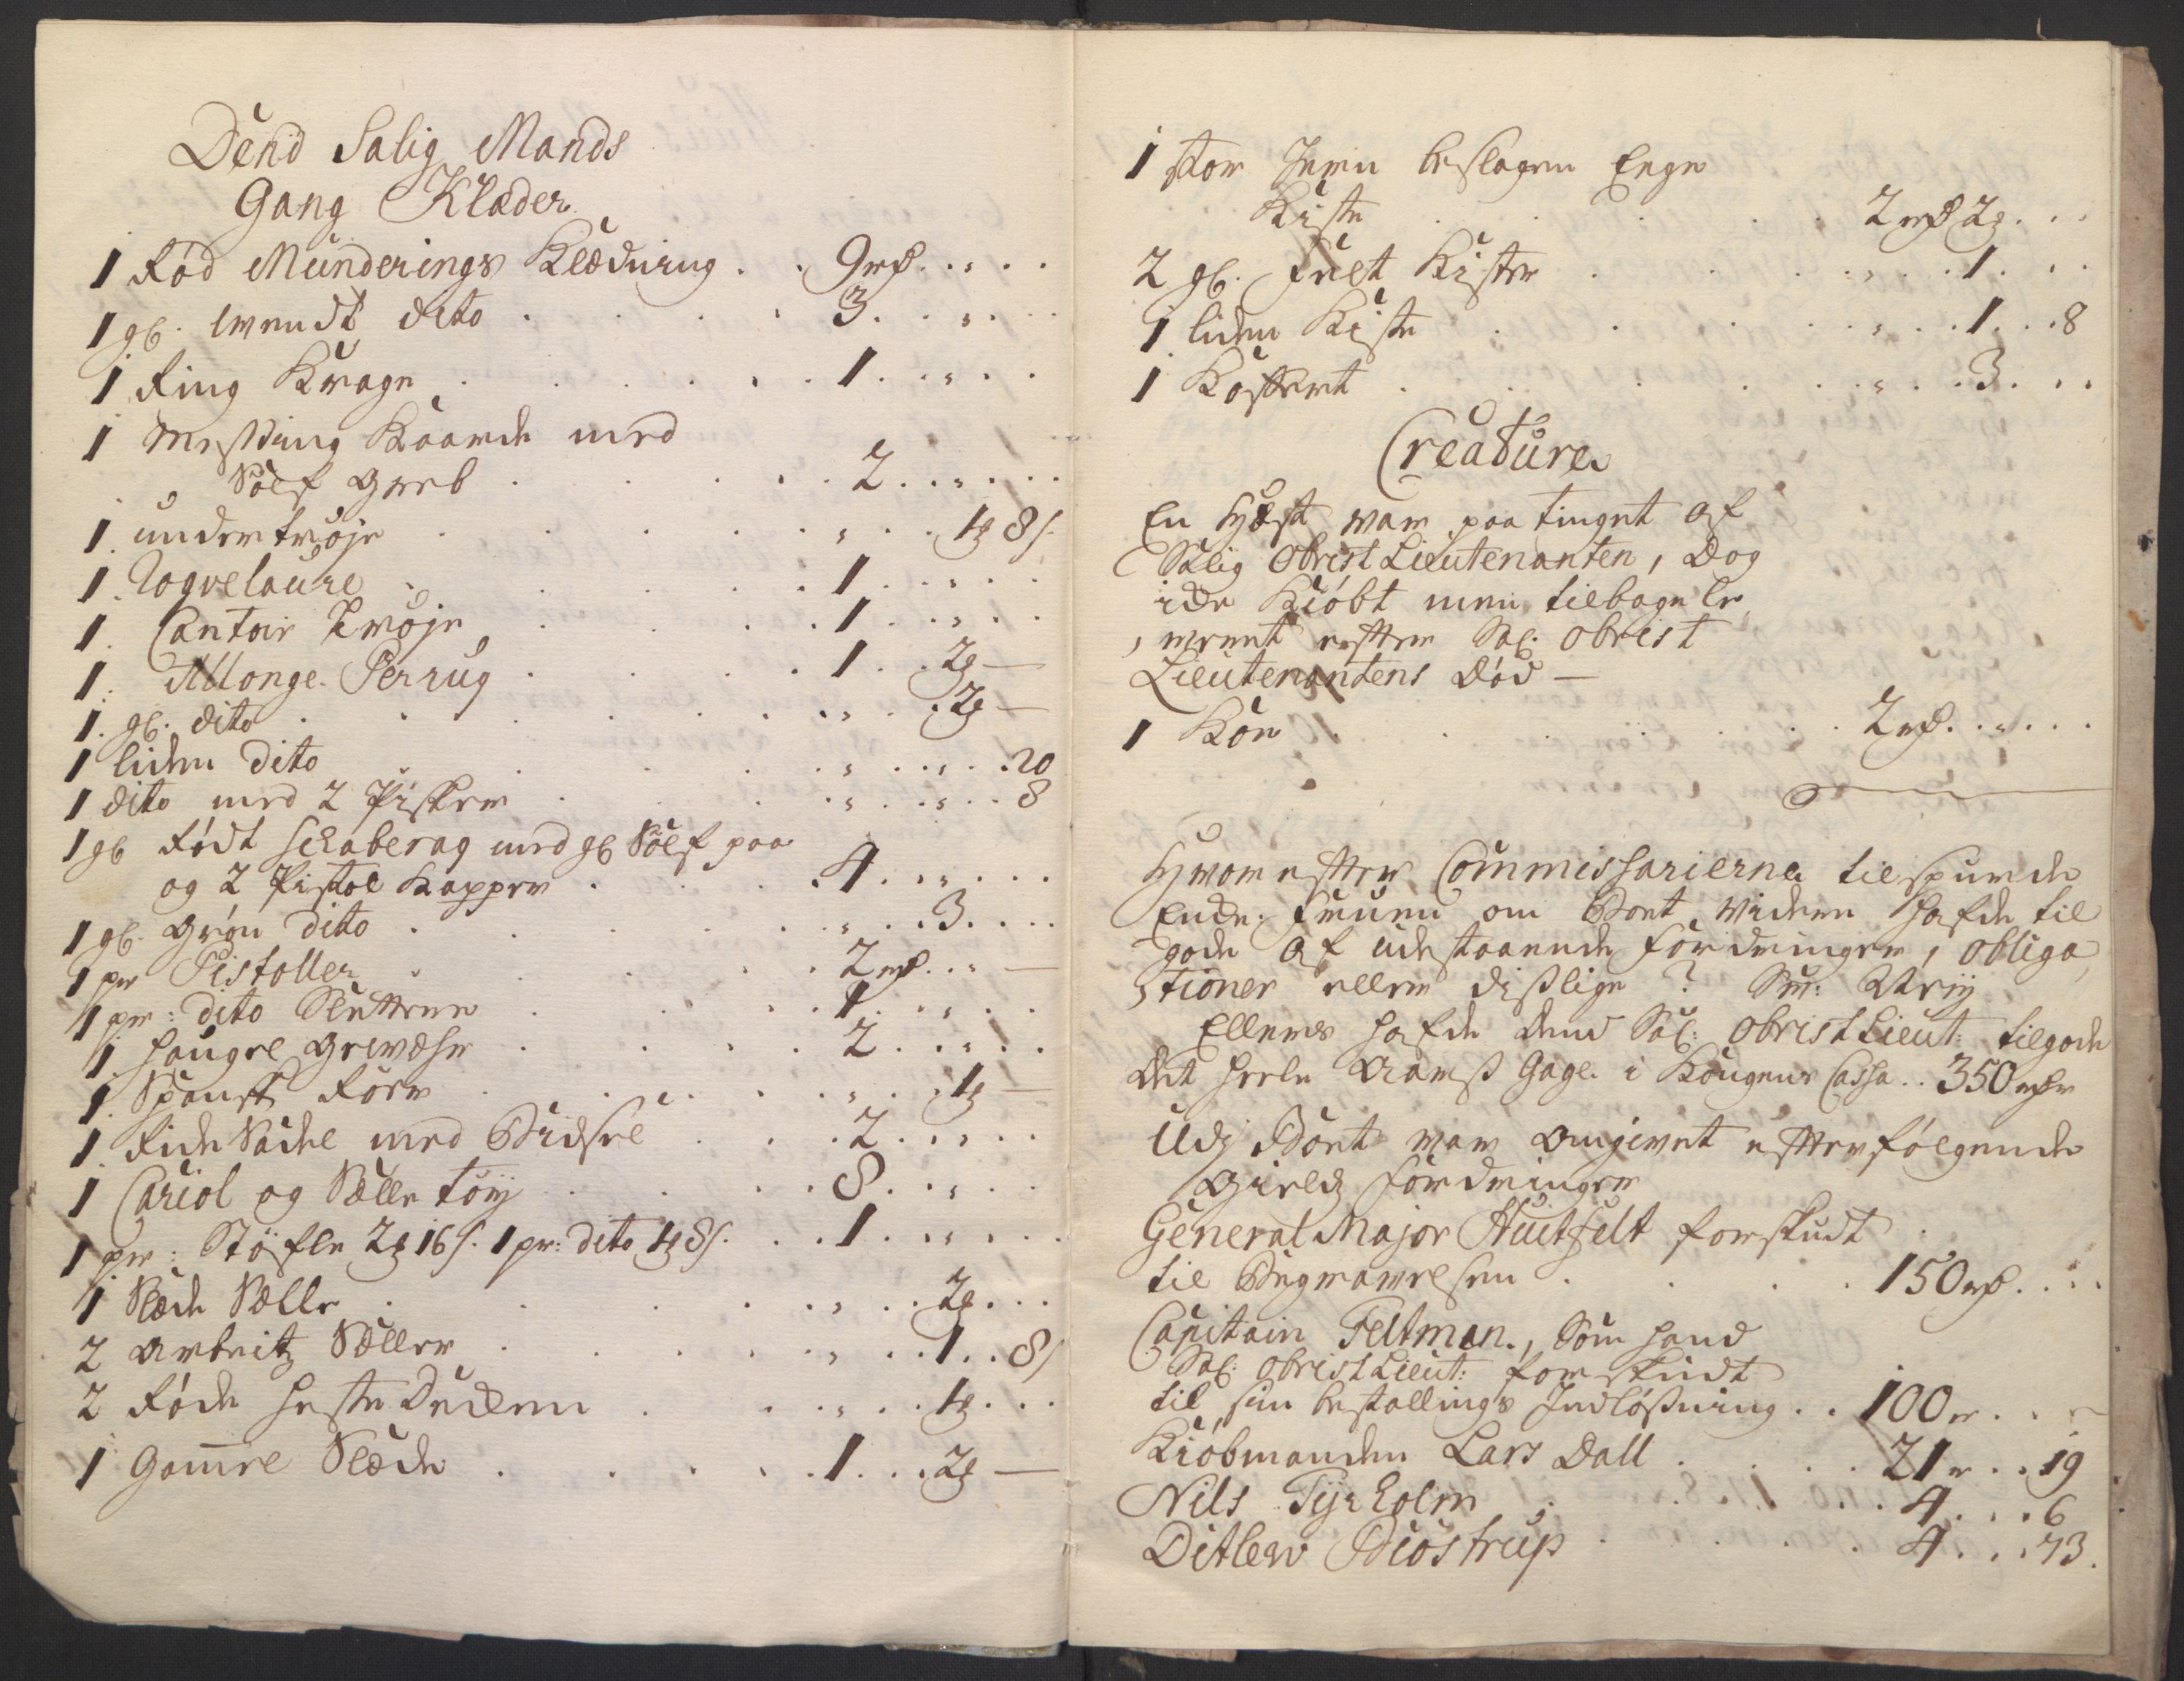 Dend Salig Mands
Gang Klæder
1 Rød Munderings Klædning . . 9 rd . „ . .
1 gl. wendt dito . . . 3 . . „ . .
1 Ring Krage . . . 1 . . „ . .
1 Messing Kaarde med
Sølf Greb . . . 2 . . „ . .
1 undertrøje . . . „ . . 1 ℳ 8 s.
1 Roqvelaure . . . 1 . . „ . .
1 Cantoir Trøje . . . 1 . . „ . .
1 Allonge Perrug . . . 1 . . 2 ℳ —
1 gl. dito . . . „ . . 2 ℳ —
1 liden dito . . . „ . . „ . . 20
1 dito med 2 Pisker . . . „ . . „ . . 8
1 gl Rødt schaberag med gl Sølf paa
og 2 Pistol Kapper . . . 4 . . „ . .
1 gl. Grøn dito . . . „ . . 3 . . .
1 pr Pistoller . . . 2 rd . . „ —
1 pr: dito Slettere . . . 1 . . „ . .
1 haugel Gewæhr . . . 2 . . „ . .
1 Spansk Rør . . . „ . . 1 ℳ —
1 Ride Sadel med Bidsel . . . 2 . . „ . .
1 Cariol og Sælle tøy . . . 8 . . „ . .
1 pr: Støfle 2 ℳ 16 s. 1 pr: dito 1 ℳ 8 s. . . 1 . . „ . .
1 Slæde Sælle . . . „ . . 2 ℳ . . .
2 Arbeitz Sæller . . . „ . . 1 . . 8 s
2 Røde heste Dekener . . . „ . . 1 ℳ . . .
1 Gamel Slæde . . . 1 . . 2 ℳ —
1 stor Jern beslagen Eege
Kiste . . . 2 rd 2 ℳ . . .
2 gl. Felt Kister . . . „ . . 1 . . .
1 liden Kiste . . . „ . . 1 . . 8
1 Koffert . . . „ . . 3 . . .
Creature
En Hæst war paa tinget af
Salig Obrist Lieutenanten, dog
icke Kiøbt men tilbage le,
, weret effter Sal. Obrist
Lieutenantens død —
1 Koe . . . 2 rd . . „ . .
Hworeffter Commissarierne tilspurde
Encke-Fruen om Boet widere hafde til
gode af udestaaende fordringer, obliga,
, tioner eller dislige? Sv: Ney
Ellers hafde dend Sal: Obrist Lieut: tilgode
det heele Aars Gage i Kongens Cassa . . 350 rdr
Udj Boet war angivet effterfølgende
Gields fordringer
General Major Huitfelt forskudt
til Begravelsen . . . 150 rd . . .
Capitain Feltman, som hand
Sal: Obrist Lieut: forskudt
til sin bestallings Indløsning . . 100 r . . „
Kiøbmanden Lars Dall . . . 21 r . . 19
Nils Tyrholm . . . 4 . . . 6
Ditlew Biostrup . . . 4 . . . 73